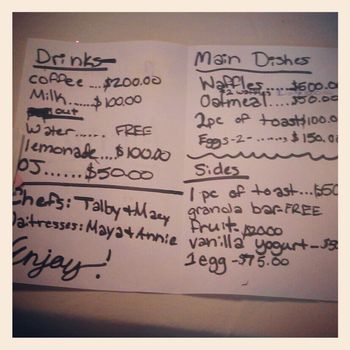 Drinks
coffee....$200.00
Milk....$100.00
out
Water...... FREE
lemonade...$100.00
OJ......$50.00
Chefs: Talby + Macy
Waitresses: Maya + Annie
Enjoy!
Main Dishes
Waffles.....$500.00
Oatmeal....$50.00
2pc of toast $100.0
Eggs-2-.....$150.0
Sides
1 pc of toast...$50
granola bar-FREE
fruit-$20.00
vanilla yogurt-$5
1egg-$75.00